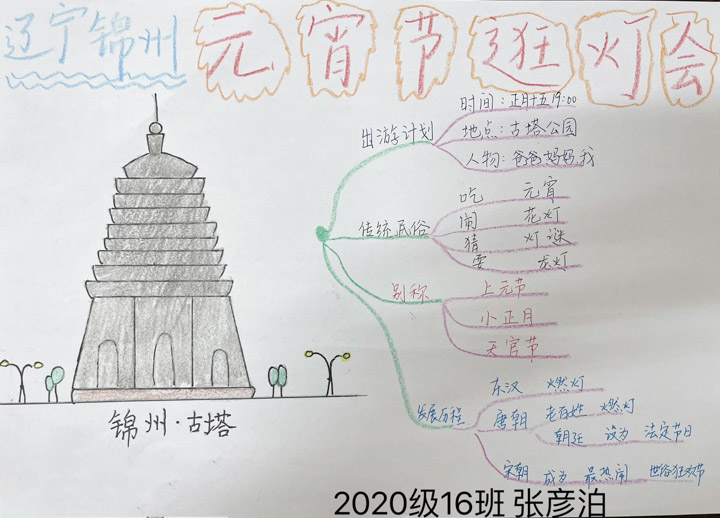 辽宁锦州 元宵节逛灯会
出游计划
时间:正月十五19:00
地点:古塔公园
人物:爸爸、妈妈、我
传统民俗
吃 元宵
闹 花灯
猜 灯谜
耍 龙灯
别称
上元节
小正月
天官节
发展历程
东汉 燃灯
唐朝 老百姓 燃灯
朝廷 设为 法定节日
宋朝 成为 最热闹 世俗狂欢节
锦州·古塔
2020级16班 张彦泊